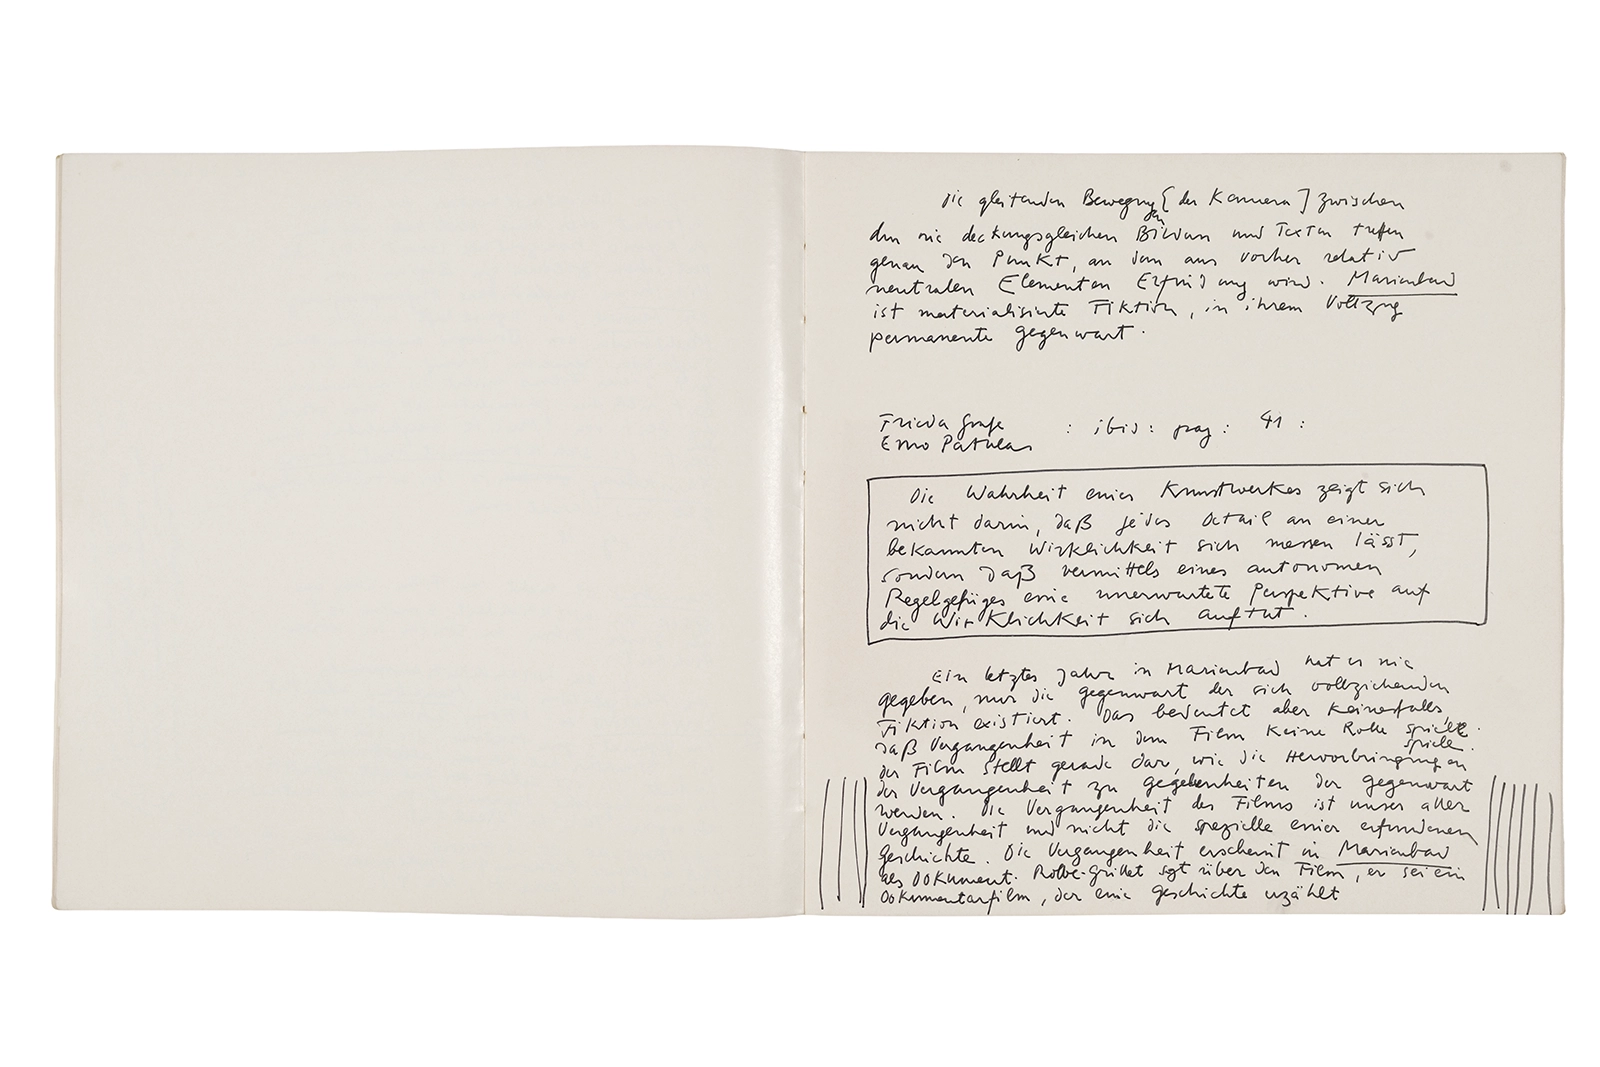 Die gleitenden Bewegungen [der Kamera] zwischen
den nie deckungsgleichen Bildern und Texten treffen
genau den Punkt, an dem aus vorher relativ
neutralen Elementen Erfindung wird. Marienbad
ist materialisierte Fiktion, in ihrem Vollzug
permanente Gegenwart.
Frieda Grafe
Enno Patalas : ibid: pag: 41 :
Die Wahrheit eines Kunstwerkes zeigt sich
nicht darin, daß jedes Detail an einer
bekannten Wirklichkeit sich messen lässt,
sondern daß vermittels eines autonomen
Regelgefüges eine unerwartete Perspektive auf
die Wirklichkeit sich auftut.
Ein letztes Jahr in Marienbad hat es nie
gegeben, nur die Gegenwart der sich vollziehenden
Fiktion existiert. Das bedeutet aber keinesfalls,
daß Vergangenheit in dem Film keine Rolle spielte.
spiele.
der Film stellt gerade dar, wie die Hervorbringungen
der Vergangenheit zu Gegebenheiten der Gegenwart
werden. Die Vergangenheit des Films ist unser aller
Vergangenheit und nicht die spezielle einer erfundenen
Geschichte. Die Vergangenheit erscheint in Marienbad
als Dokument. Robbe-Grillet sgt über den Film, er sei ein
Dokumentarfilm, der eine Geschichte erzählt